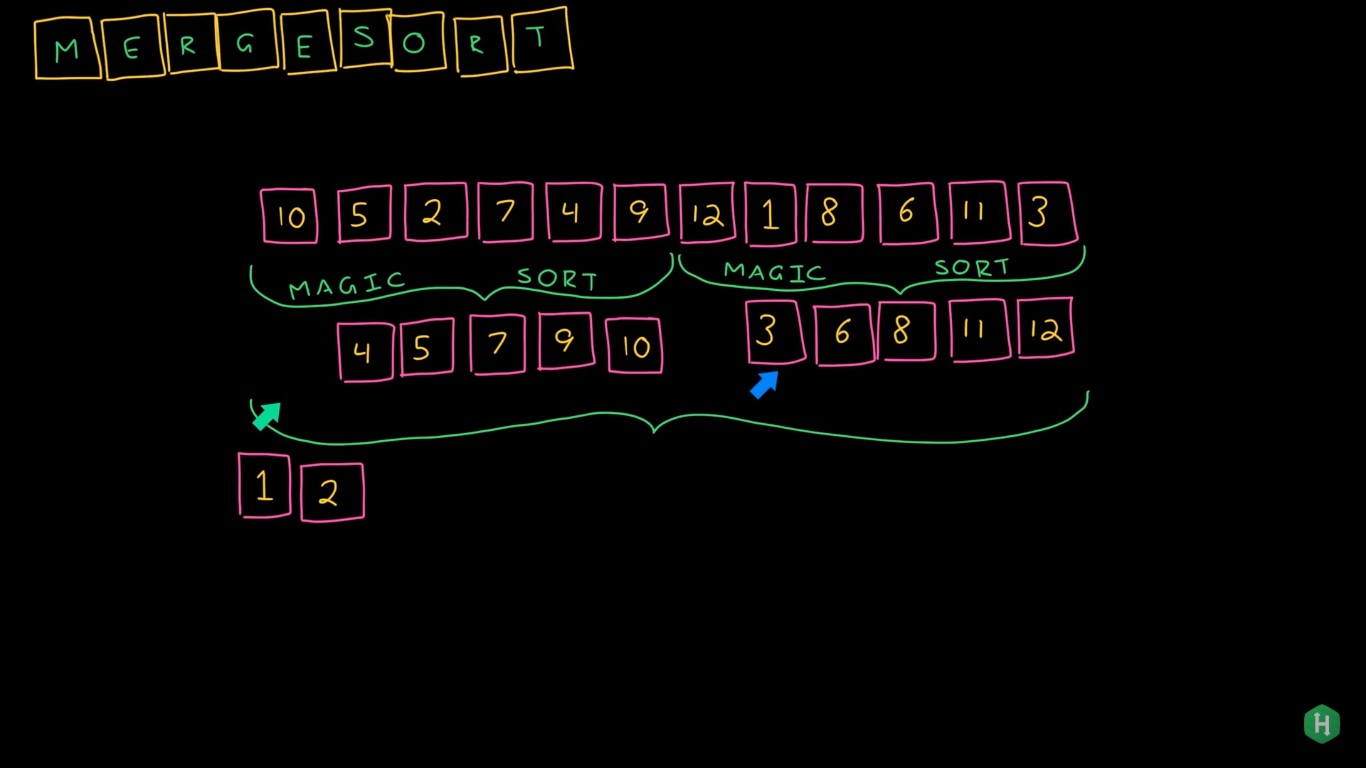 MERGESORT
10 5 2 7 4 9 12 1 8 6 11 3
MAGIC SORT MAGIC SORT
4 5 7 9 10 3 6 8 11 12
1 2
H